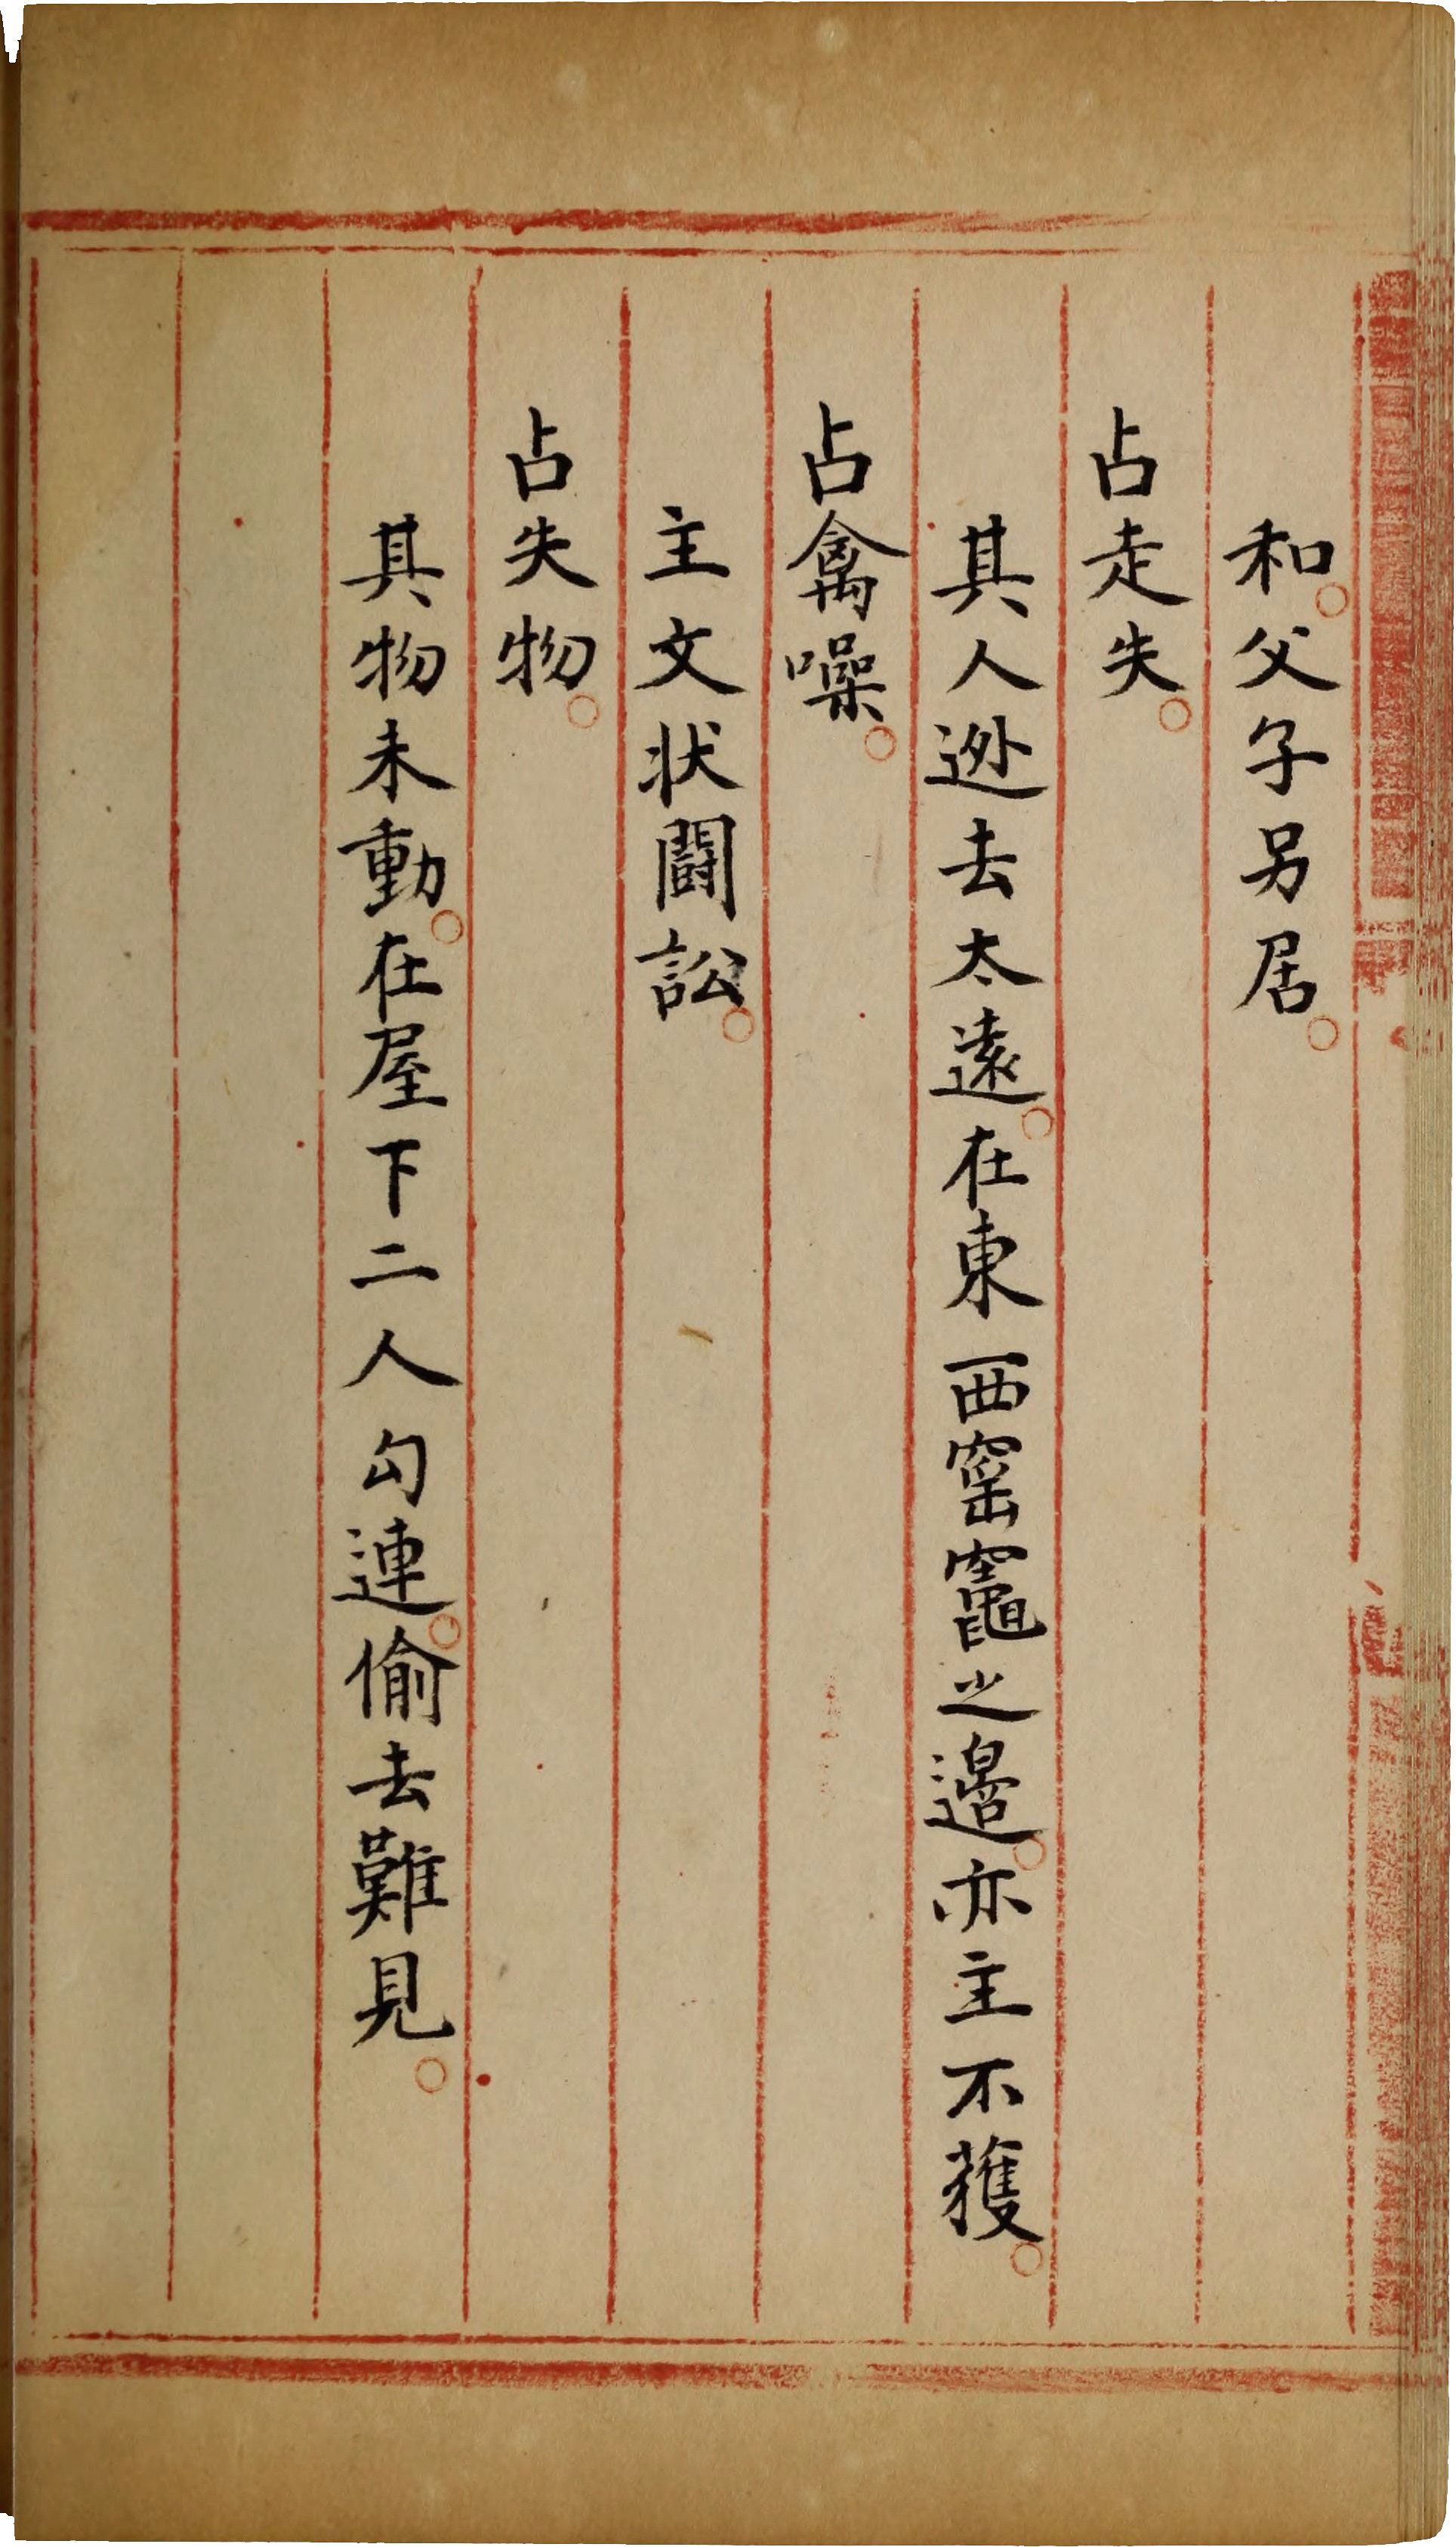 和。父子另居。
占走失。
其人逃去太遠。在東西窑竈之邉。亦主不獲。
占禽噪。
主文状鬭訟。
占失物。
其物未動。在屋下二人勾連。偷去難見。